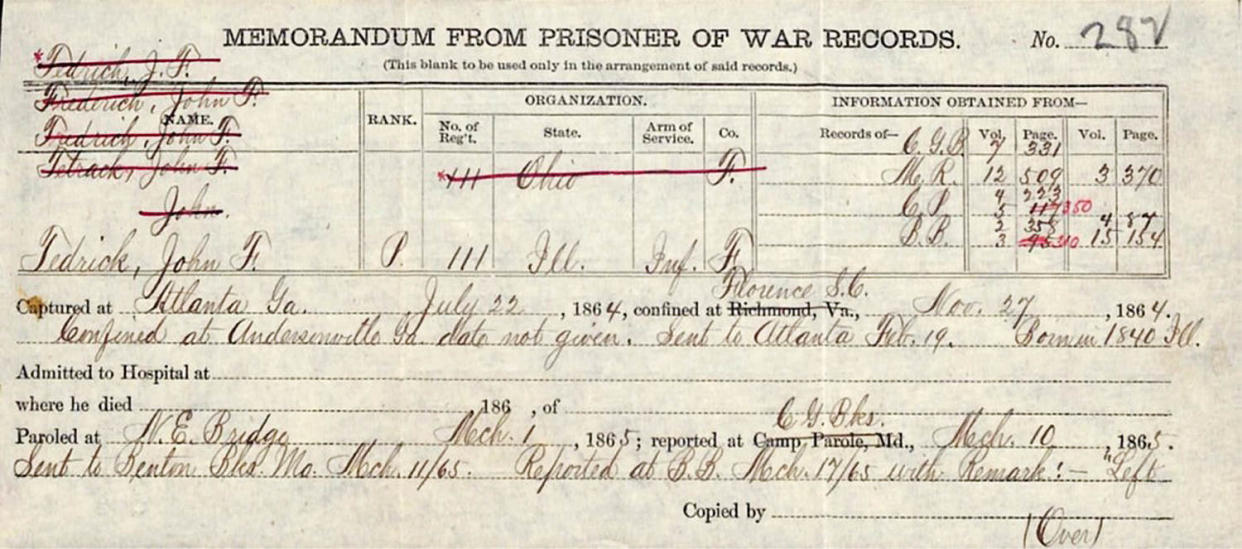 MEMORANDUM FROM PRISONER OF WAR RECORDS. No. 282
(This blank to be used only in the arrangement of said records.)
*Tedrich, J. F.
Frederich, John F.
Fredrich, John F.
Tetrack, John F.
John.
NAME. RANK. ORGANIZATION. INFORMATION OBTAINED FROM—
No. of Reg't. State. Arm of Service. Co. Records of— Vol. Page. Vol. Page.
C.G.B. 7 331
*111 Ohio F. M.R. 12 509 3 370
C.P. 4 223
5 117 350
B.B. 2 358 4 87
3 95 210 15 154
Tedrick, John F. P. 111 Ill. Inf. F
Captured at Atlanta Ga. July 22, 1864, confined at Richmond, Va., Florence S.C. Nov. 27, 1864.
Confined at Andersonville Ga. date not given. Sent to Atlanta Feb. 19. Born in 1840 Ill.
Admitted to Hospital at
where he died 186 , of
Paroled at N.E. Bridge Mch. 1, 1865; reported at Camp Parole, Md., C.G.Bks. Mch. 10, 1865.
Sent to Benton Bks. Mo. Mch. 11/65. Reported at B.B. Mch. 17/65 with Remark:— "Left
Copied by
(Over)